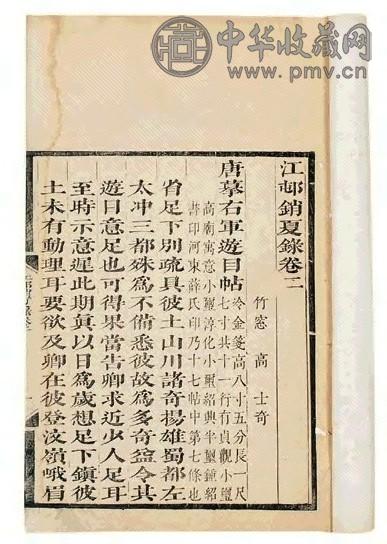 中华收藏网
www.pmv.cn
江邨銷夏錄卷二
竹窓 高士奇
唐摹右軍遊目帖
冷金箋高八寸五分長一尺
七寸共十一行有貞觀小璽
高廟寓意小璽淳化小璽紹興半璽鐘紹
京書印河東薛氏印乃十七帖中第七條也
省足下別疏具彼土山川諸奇揚雄蜀都左
太冲三都殊爲不備悉彼故爲多奇益令其
遊目意足也可得果當告卿求迎少人足耳
至時示意遲此期真以日爲歲想足下鎮彼
土未有動理耳要欲及卿在彼登汶嶺峨眉